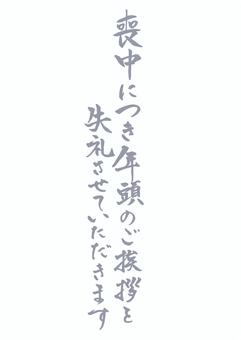 喪中につき年頭のご挨拶を
失礼させていただきます